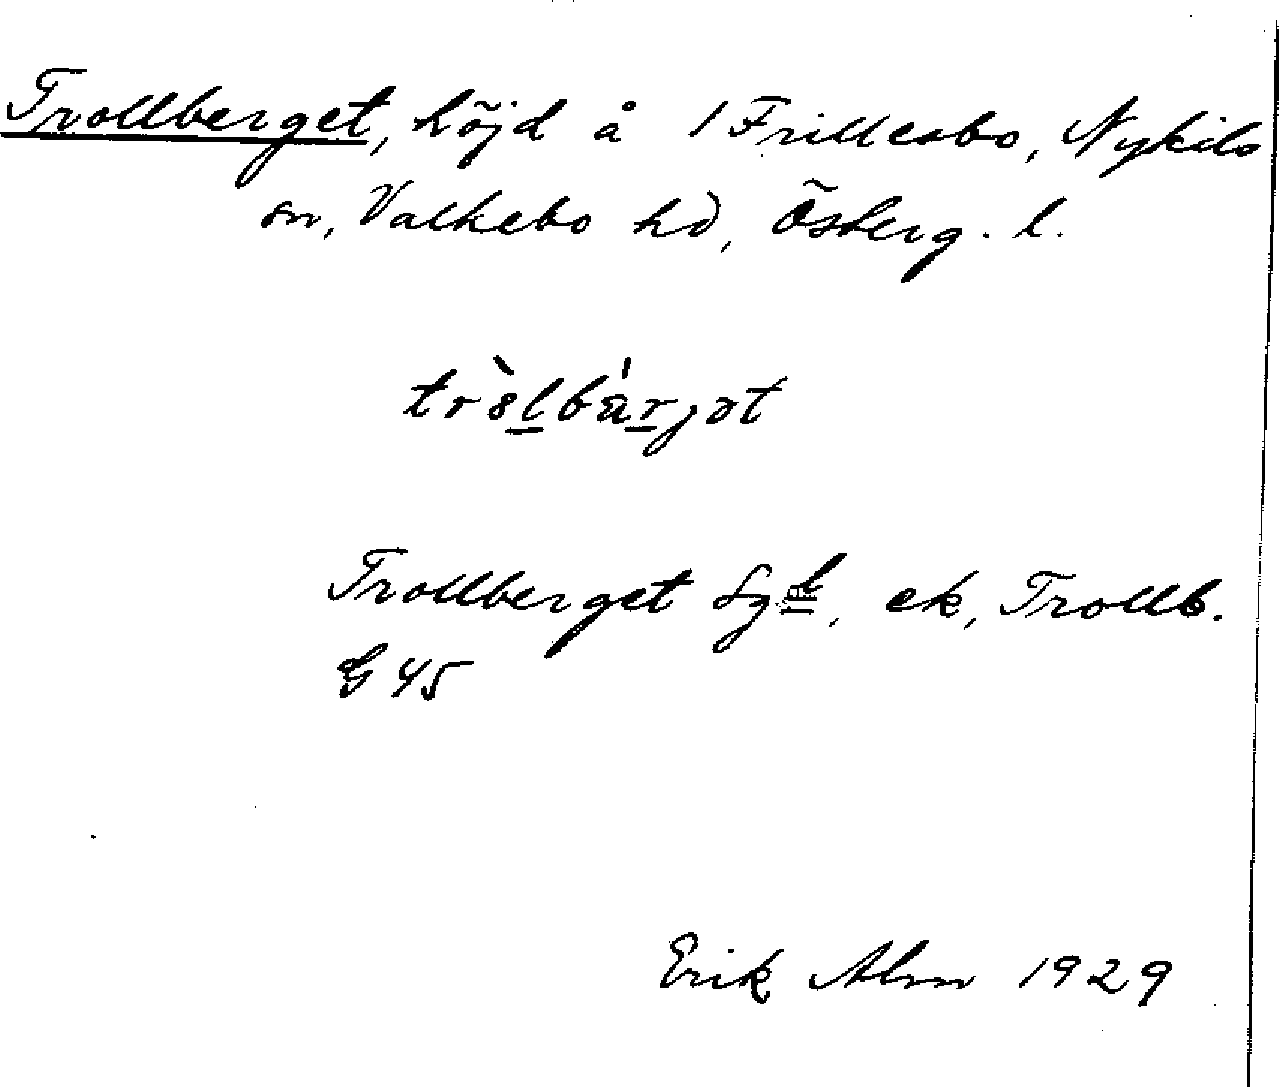 Trollberget, höjd å 1 Frillesbo, Nykils
sn, Valkebo hd, Österg. l.
tròlbárjət
Trollberget Sgk, ek, Trollb.
G 45
Erik Alm 1929